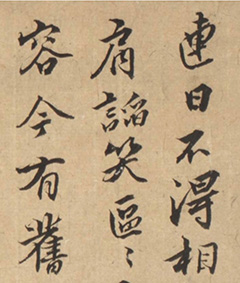 連日不得相
肩諂笑區〻
容今有舊